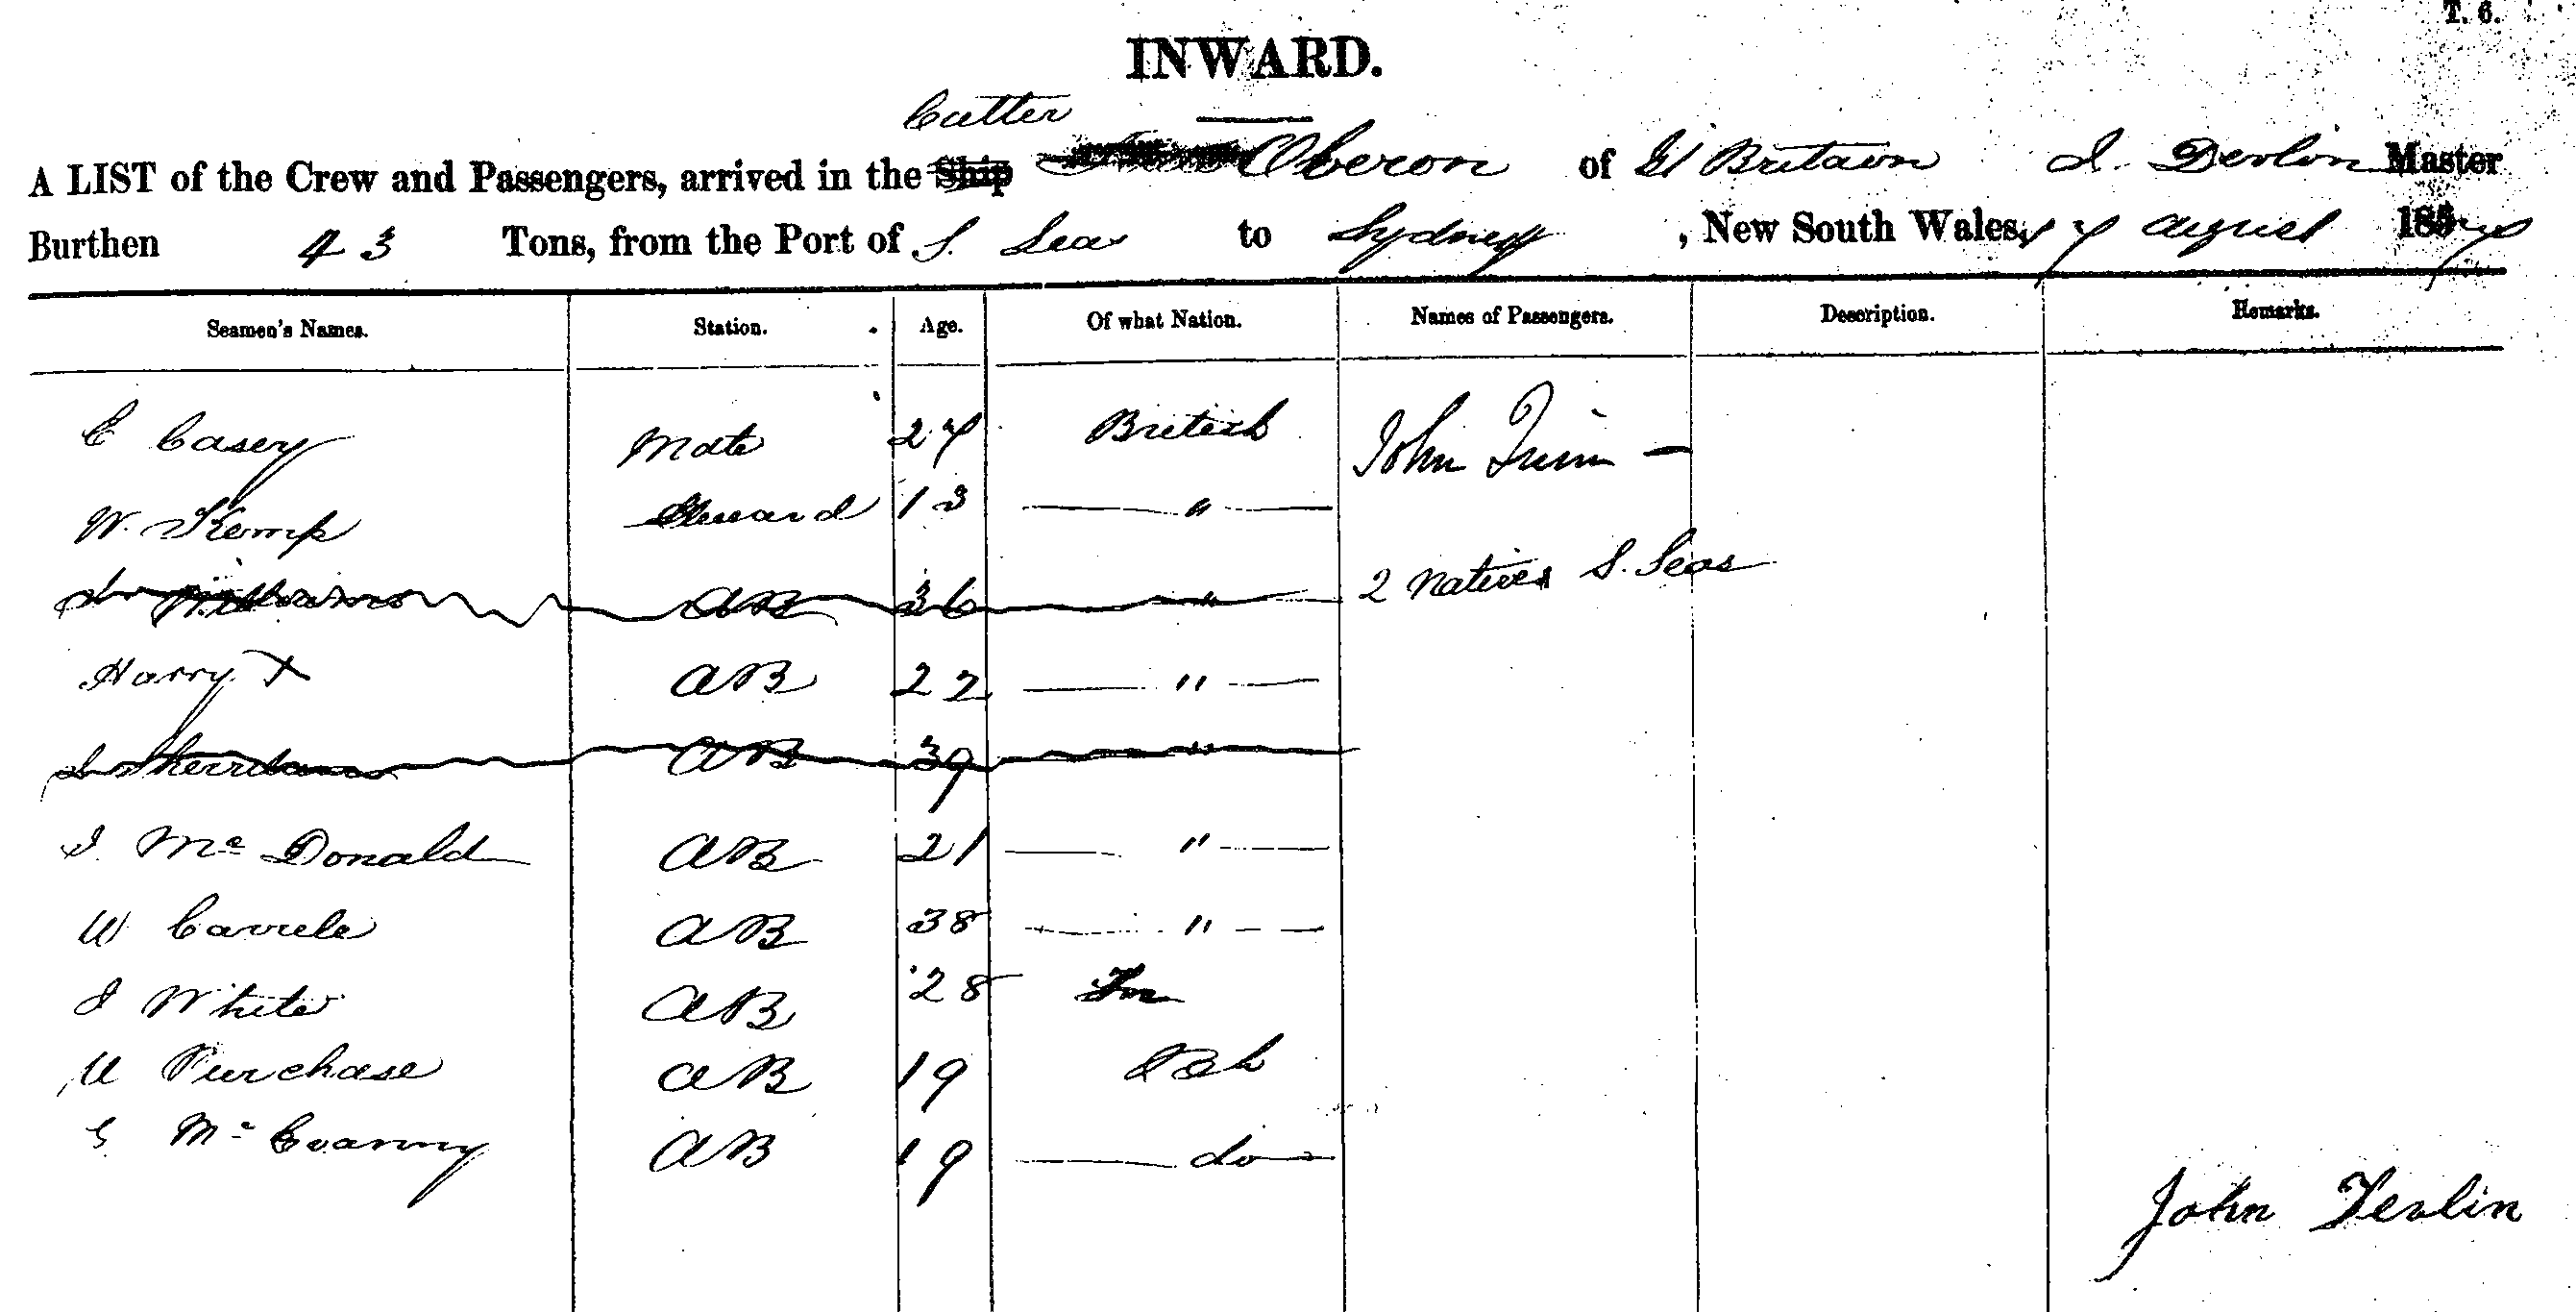 T. 6.
INWARD.
Cutter
A LIST of the Crew and Passengers, arrived in the Ship Oberon of Gt Britain J. Devlin Master
Burthen 43 Tons, from the Port of S. Sea to Sydney, New South Wales, 7 August 185
Seamen's Names. Station. Age. Of what Nation. Names of Passengers. Description. Remarks.
C Casey Mate 27 British John Quinn —
W. Kemp Steward 13 — " —
J Williams AB 36 — " — 2 Natives S. Seas
Harry X AB 22 — " —
J Sherridan AB 39 — " —
J. Mc Donald AB 21 — " —
W AB 38 — " —
J White AB 28
W Purchase AB 19
Mc AB 19 — do —
John Devlin